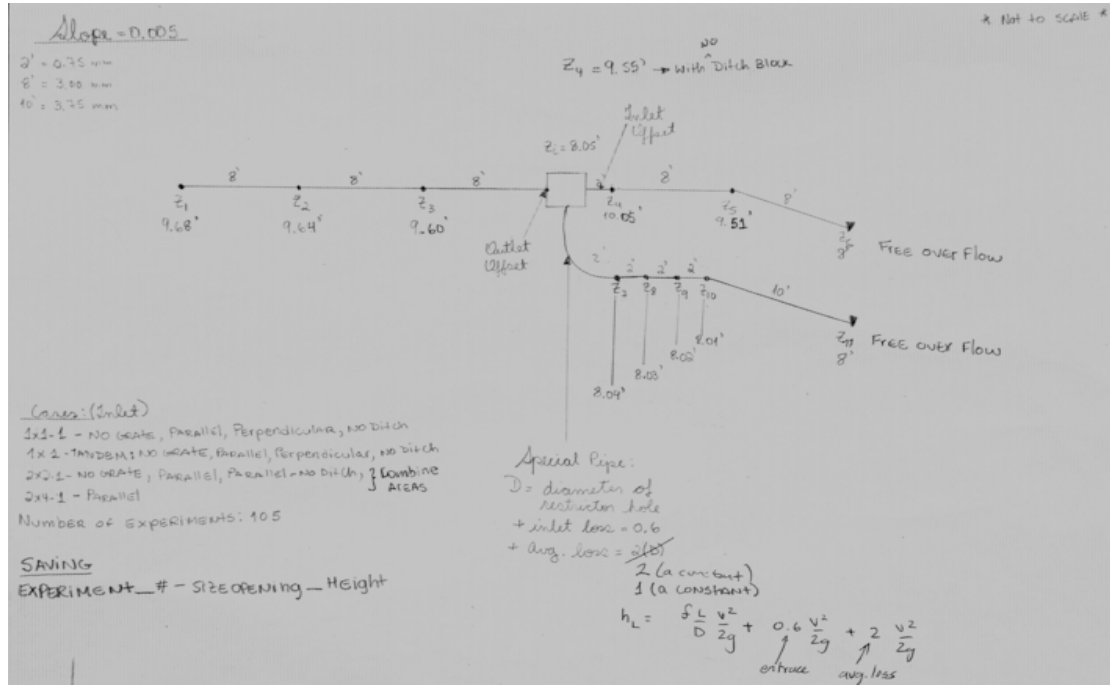 * Not to SCALE *
Slope = 0.005
2' = 0.75 mm
8' = 3.00 mm
10' = 3.75 mm
NO
Z4 = 9.55' → with ^ Ditch Block
Inlet
Offset
Zi = 8.05'
8' 8' 8' 2' 8' 8'
Z1 Z2 Z3 Z4 Z5 Z6
9.68' 9.64' 9.60' 10.05' 9.51' 8'
FREE OVER FLOW
Outlet
Offset
2' 2' 2' 2' 10'
Z7 Z8 Z9 Z10 Z11
8.04' 8.03' 8.02' 8.01' 8'
FREE OVER FLOW
Cases: (Inlet)
1x1-1 - NO GRATE, PARALLEL, Perpendicular, NO Ditch
1x1-TANDEM: NO GRATE, PARALLEL, Perpendicular, NO Ditch
2x2-1 - NO GRATE, PARALLEL, PARALLEL-NO DITCH, } Combine AREAS
2x4-1 - PARALLEL
NUMBER OF EXPERIMENTS: 105
SAVING
EXPERIMENT_# - SIZEOPENING_HEIGHT
Special Pipe:
D = diameter of
restrictor hole
+ inlet loss = 0.6
+ avg. loss = 2(D)
2 (a constant)
1 (a CONSTANT)
hL = f L/D v²/2g + 0.6 v²/2g + 2 v²/2g
entrace avg. loss